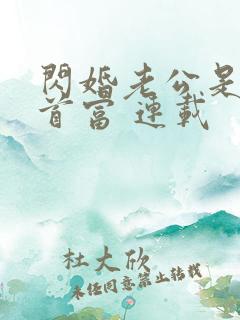 閃婚老公是
首富 連載
杜大欣
未經同意禁止轉載